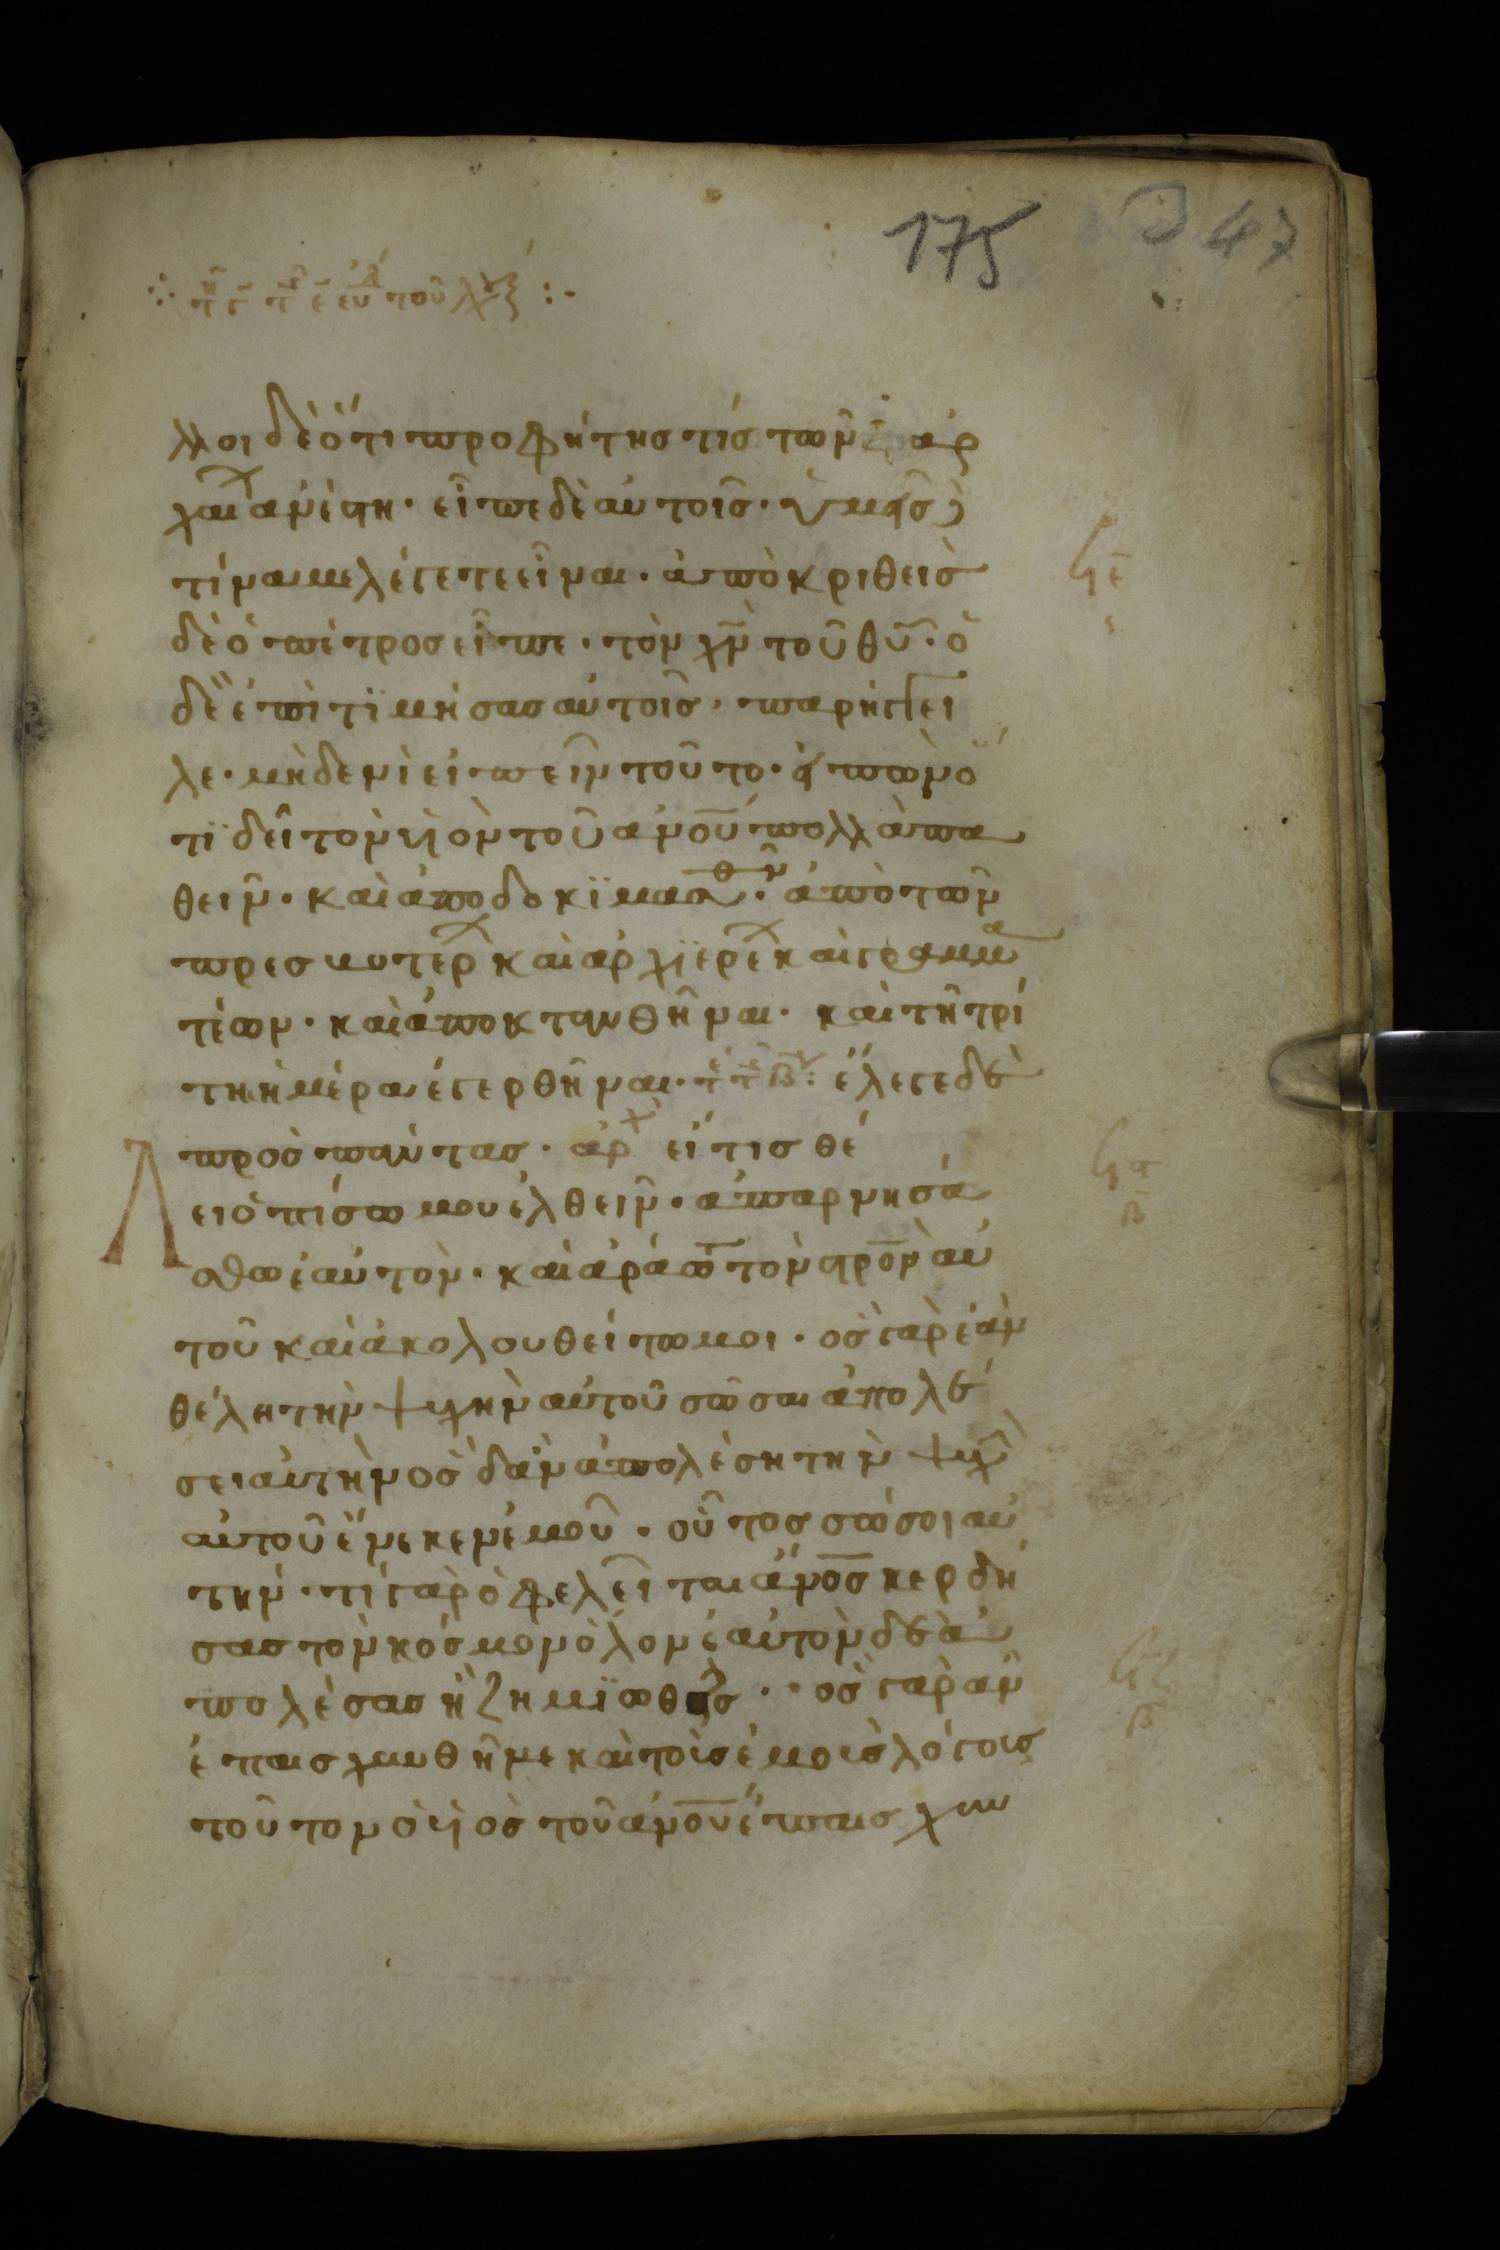 175 47
τῆ ϛ̄ τῆ ε̄ εὐα τοῦ
λλοι δὲ ὅτι προφήτησ τίσ τῶν ἀρ
χαι ἀνέστη· εἶπε δὲ αὐτοῖσ· ὑμεῖσ δὲ
τίνα με λέγετε εἶναι· ἀπὸκριθεὶσ
δὲ ὁ πέτροσ εἶπε· τὸν χν̄ τοῦ θῡ· ὁ
δὲ ἐπὶτϊμήσασ αὐτοῖσ, παρήγγει
λε· μὴδενὶ εἰπεῖν τοῦτο· εἰπὼν ὅ
τϊ δεῖ τὸν υἱὸν τοῦ ἀνοῡ πολλὰ πα
θεῖν· καὶ ἀποδοκϊμασθῆν· ἀπὸ τῶν
πρεσβυτερ καὶ ἀρχϊερε καὶ γραμμα
τέων· καὶ ἀποκτανθῆναι· καὶ τῆ τρί
τη ἡμέρα ἐγερθῆναι· ἔλεγε δὲ
πρὸσ πάντασ· ἀρχ εἴ τισ θέ
Λει ὀπίσω μου ἐλθεῖν· ἀπαρνησά
σθω ἑαυτὸν· καὶ ἀράτω τὸν στρο̄ν αὐ
τοῦ καὶ ἀκολουθείτω μοι· ὃσ γὰρ ἐὰν
θέλη τὴν ψυχὴν αὐτοῦ σῶσαι ἀπολέ
σει αὐτὴν ὃσ δἂν ἀπολέση τὴν ψυχ
αὐτοῦ ἕνεκεν ἐμοῦ· οὗτοσ σώσοι αὐ
τήν· τί γὰρ ὀφελεῖται ἄνο̄σ κερδή
σασ τὸν κόσμον ὅλον ἑαυτὸν δὲ ἀ
πολέσασ ἢ ζημϊωθεὶσ·· ὃσ γὰρ ἂν
ἐπαισχυνθῆ με καὶ τοὺσ ἐμοὺσ λόγουσ
τοῦτον ὁ υἱὸσ τοῦ ἀνοῡ ἐπαισχυν